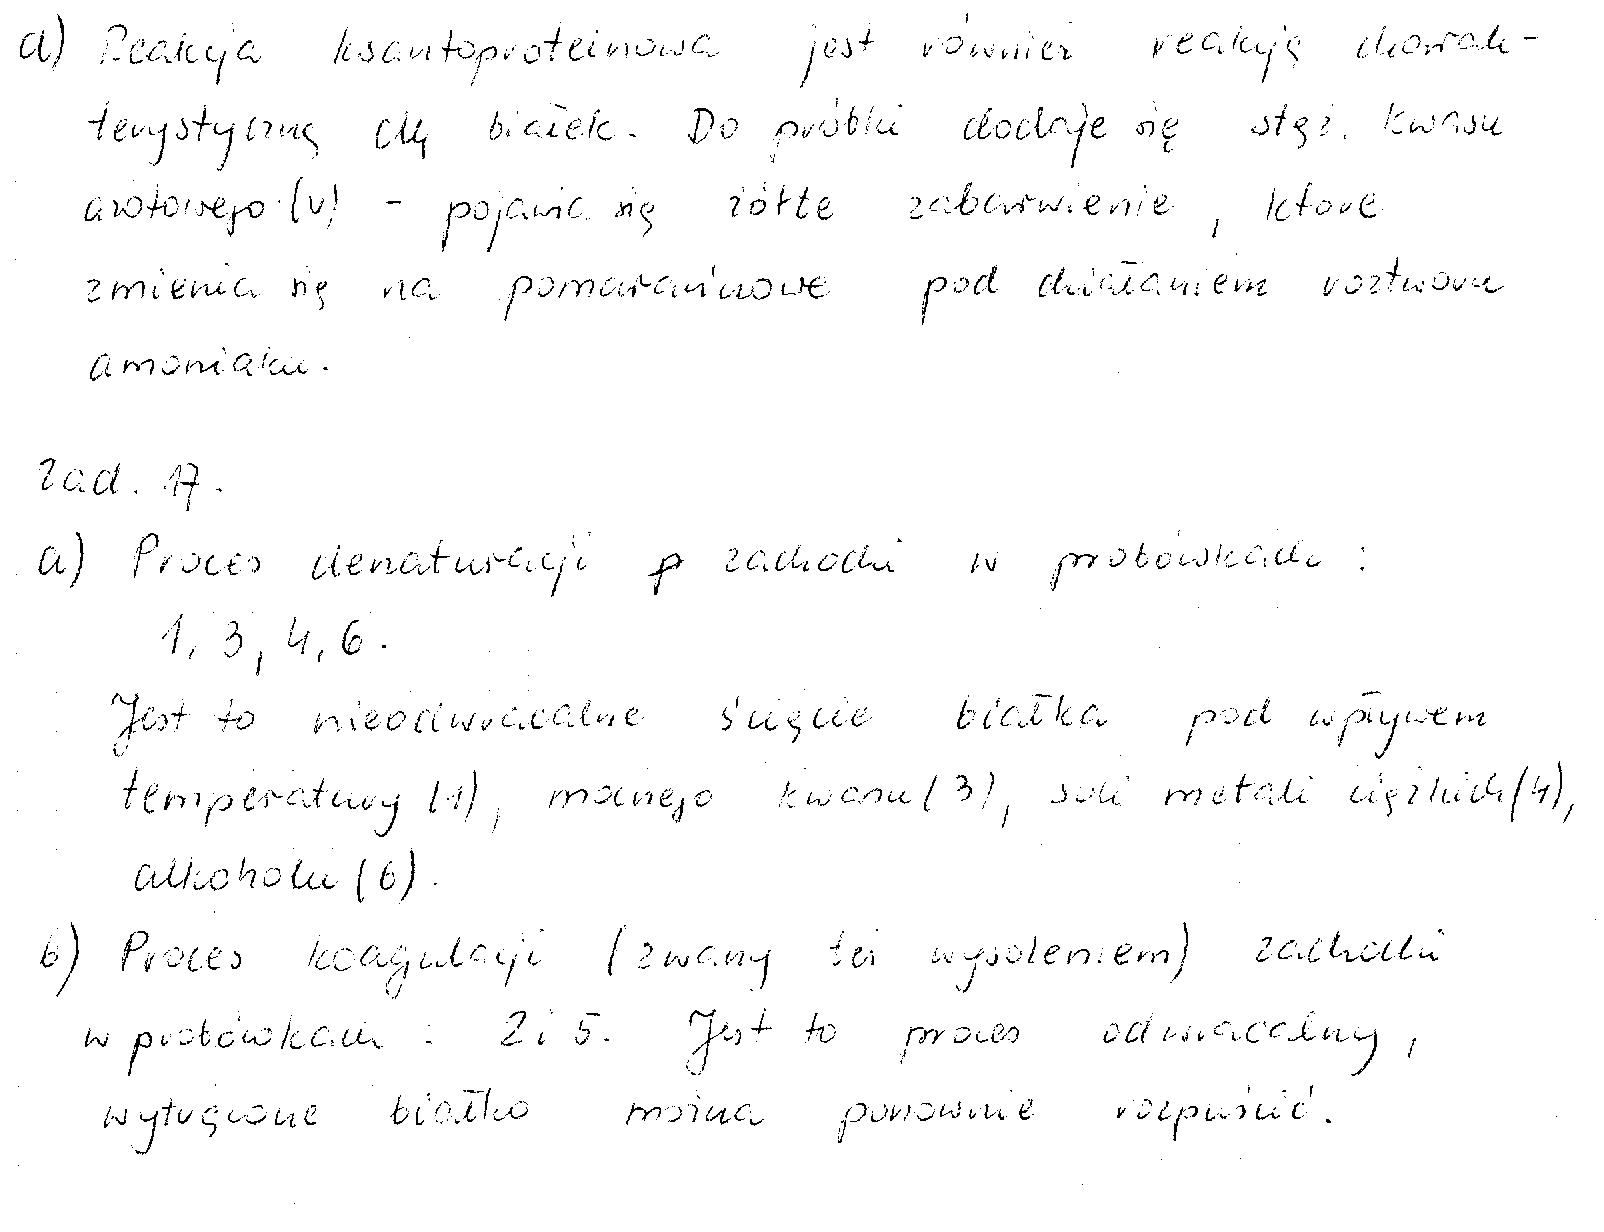 d) Reakcja ksantoproteinowa jest również reakcją charak-
terystyczną dla białek. Do próbki dodaje się stęż. kwasu
azotowego (V) - pojawia się żółte zabarwienie, które
zmienia się na pomarańczowe pod działaniem roztworu
amoniaku.
zad. 17.
a) Proces denaturacji zachodzi w probówkach:
1, 3, 4, 6.
Jest to nieodwracalne ścięcie białka pod wpływem
temperatury (1), mocnego kwasu (3), soli metali ciężkich (4),
alkoholu (6).
b) Proces koagulacji (zwany też wysoleniem) zachodzi
w probówkach: 2 i 5. Jest to proces odwracalny,
wytrącone białko można ponownie rozpuścić.